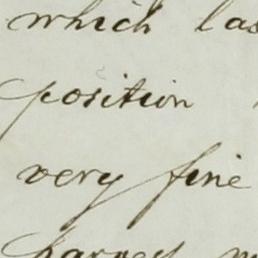 which las
position
very fine